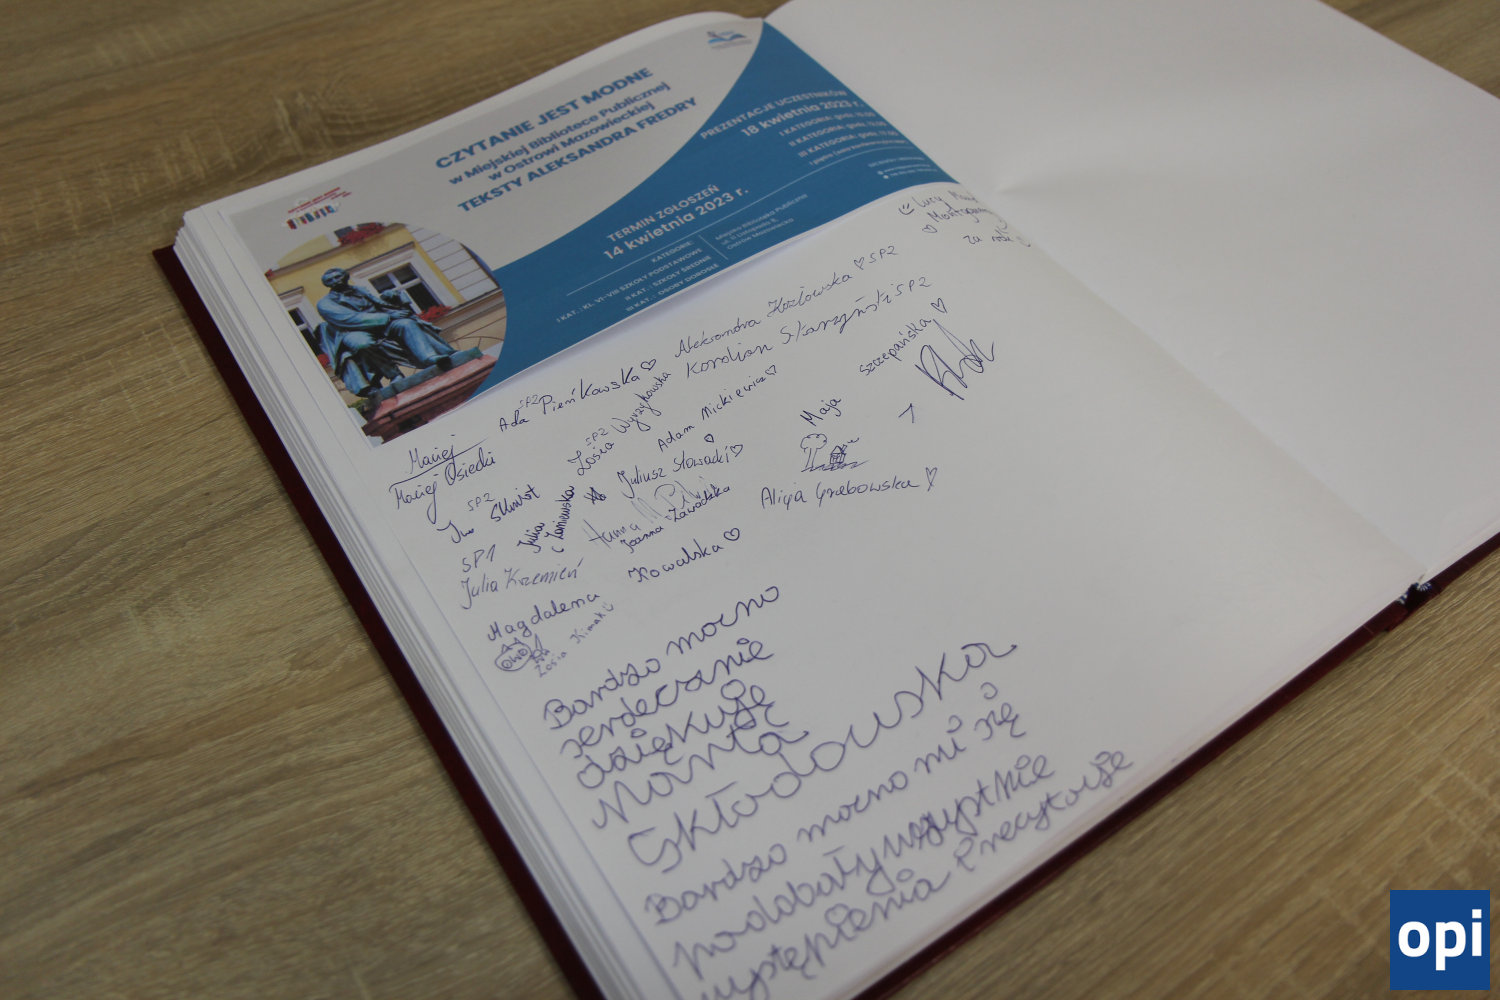 CZYTANIE JEST MODNE
w Miejskiej Bibliotece Publicznej
w Ostrowi Mazowieckiej
TEKSTY ALEKSANDRA FREDRY
PREZENTACJE UCZESTNIKÓW
18 kwietnia 2023 r.
I KATEGORIA: godz.
II KATEGORIA: godz.
III KATEGORIA: godz.
TERMIN ZGŁOSZEŃ
14 kwietnia 2023 r.
KATEGORIE:
I KAT.: KL. VI-VIII SZKOŁY PODSTAWOWE
II KAT.: SZKOŁY ŚREDNIE
III KAT.: OSOBY DOROSŁE
Miejska Biblioteka Publiczna
ul. 11 Listopada
Ostrów Mazowiecka
Lucy
za
Aleksandra Kozłowska ♡ SP2
SP2
Ada Pieńkowska ♡
Kordian Skarzyński SP2
SP2
Zosia Wyrzykowska
Adam Mickiewicz ♡
Maja Szczepańska ♡
Maciej
Maciej Osiecki
SP2
Skwist
Julia
Juliusz Słowacki ♡
Hanna
Joanna Zawadzka
Alicja Grabowska ♡
SP1
Julia Krzemień
Magdalena Kowalska ♡
OwO
Zosia Kimak
Bardzo mocno
serdecznie
dziękuję
Marta
Skłodowska
Bardzo mocno mi się
podobały wszystkie
wystąpienia Precyzorje
opi